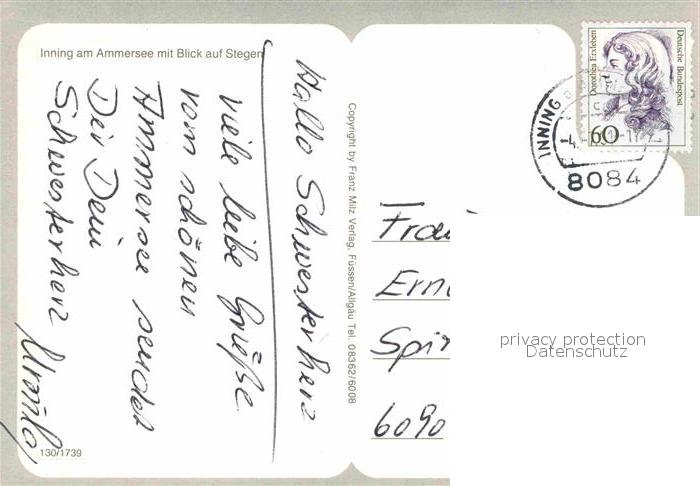 Inning am Ammersee mit Blick auf Stegen
Hallo Schwesterherz
viele liebe Grüße
vom schönen
Ammersee sendet
Dir Dein
Schwesterherz
130/1739
Copyright by Franz Milz Verlag, Füssen/Allgäu Tel. 08362/6008
Dorothea Erxleben
Deutsche Bundespost
60
INNING
-4.
8084
Frau
6090
privacy protection
Datenschutz